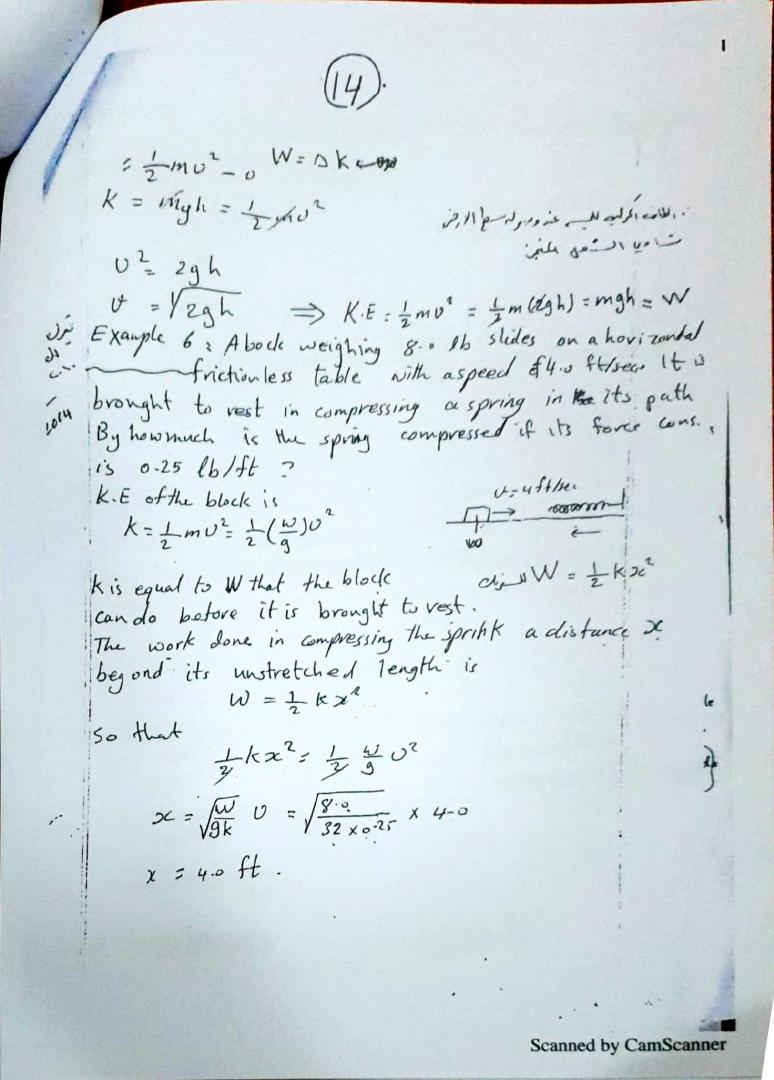 1
14
= 1/2 mυ² - 0 W = Δk
K = mgh = 1/2 mυ²
υ² = 2gh
υ = √2gh ⇒ K.E = 1/2 mυ² = 1/2 m(2gh) = mgh = W
Example 6: A bock weighing 8.0 lb slides on a horizontal
frictionless table with a speed of 4.0 ft/sec It is
brought to rest in compressing a spring in its path
By how much is the spring compressed if its force cons.
is 0.25 lb/ft ?
K.E of the block is
υ = 4 ft/sec
K = 1/2 mυ² = 1/2 (w/g)υ²
W = 1/2 kx²
K is equal to W that the block
can do before it is brought to rest.
The work done in compressing the sprihk a distance x
beyond its unstretched length is
W = 1/2 kx²
So that
1/2 kx² = 1/2 w/g υ²
x = √w/gk υ = √8.0/32 x 0.25 x 4.0
x = 4.0 ft.
Scanned by CamScanner